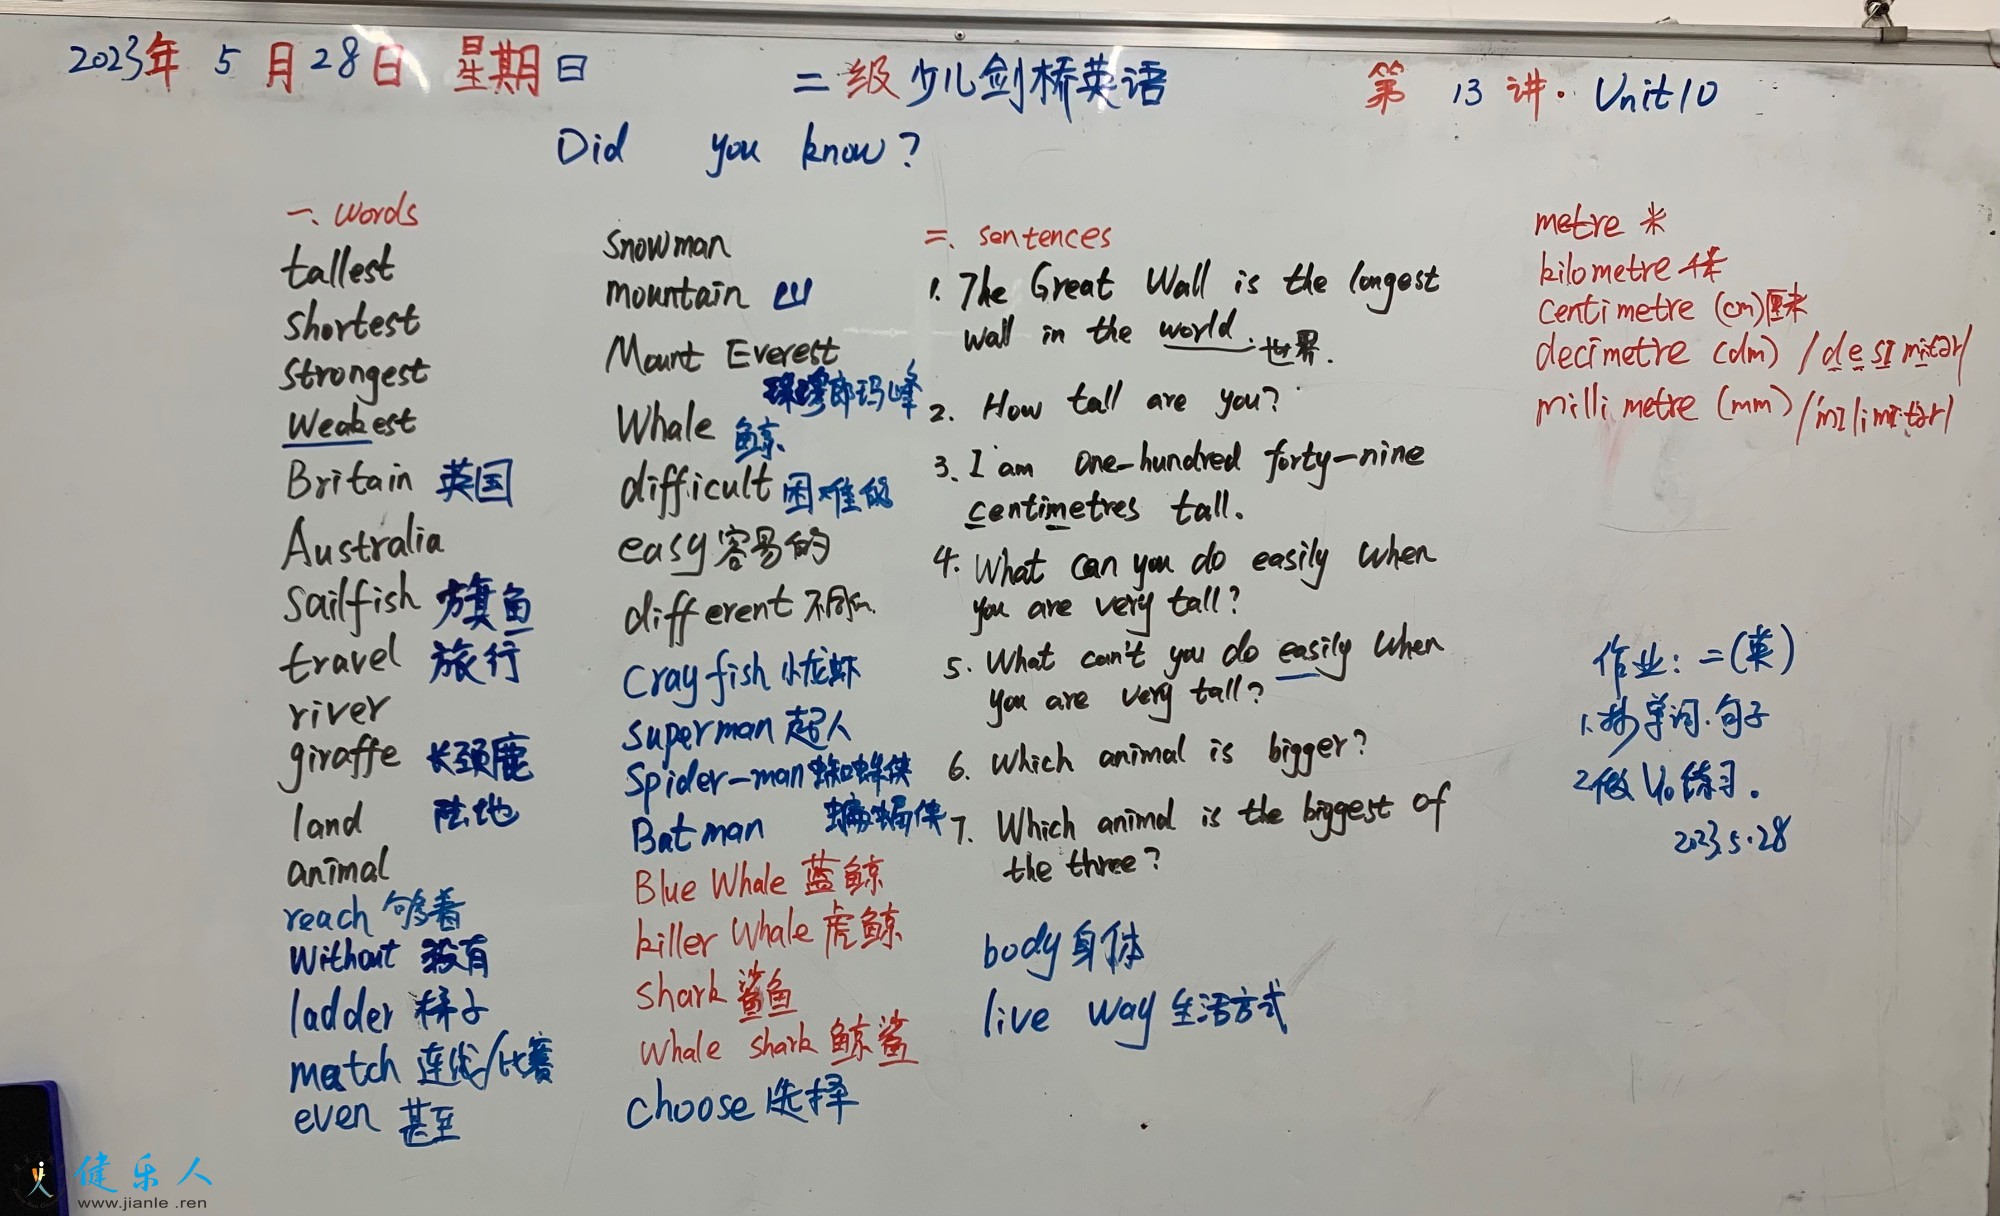 2023年 5 月 28 日 星期日
二级少儿剑桥英语
第 13 讲. Unit 10
Did you know?
一、words
tallest
shortest
strongest
Weakest
Britain 英国
Australia
sailfish 旗鱼
travel 旅行
river
giraffe 长颈鹿
land 陆地
animal
reach 够着
without 没有
ladder 梯子
match 连线/比赛
even 甚至
snowman
mountain 山
Mount Everest
珠穆郎玛峰
Whale 鲸
difficult 困难的
easy 容易的
different 不同的
Crayfish 小龙虾
superman 超人
Spider-man 蜘蛛侠
Batman 蝙蝠侠
Blue Whale 蓝鲸
killer Whale 虎鲸
shark 鲨鱼
Whale shark 鲸鲨
choose 选择
二、sentences
1. The Great Wall is the longest
wall in the world. 世界.
2. How tall are you?
3. I am one-hundred forty-nine
centimetres tall.
4. What can you do easily when
you are very tall?
5. What can't you do easily when
you are very tall?
6. Which animal is bigger?
7. Which animal is the biggest of
the three?
body 身体
live way 生活方式
metre 米
kilometre 千米
Centimetre (cm) 厘米
decimetre (dm) /desɪmitər/
millimetre (mm) /'mɪlimitər/
作业: 二(英)
1. 抄单词.句子
2. 做U10练习.
2023.5.28
健乐人
www.jianle.ren